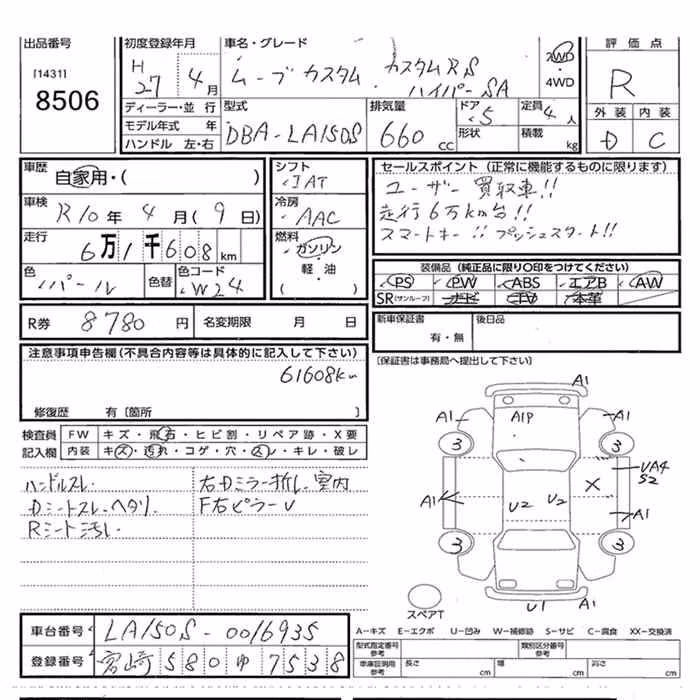 出品番号
[1431]
8506
初度登録年月
H27年4月
車名・グレード
ムーブ カスタム カスタムRS
ハイパーSA
2WD
・4WD
評価点
R
外装 内装
D C
ディーラー・並行
モデル年式 年
ハンドル 左・右
型式
DBA-LA150S
排気量
660cc
ドア
5
形状
定員
4人
積載
kg
車歴
自家用・( )
車検
R10年4月(9日)
走行
6万1千608km
色
パール
色替
色コード
W24
シフト
IAT
冷房
AAC
燃料
ガソリン
軽・油
( )
セールスポイント(正常に機能するものに限ります)
ユーザー買取車!!
走行6万km台!!
スマートキー!!プッシュスタート!!
装備品(純正品に限り○印をつけてください)
PS PW ABS エアB AW
SR(サンルーフ) ナビ TV 本革
R券 8780円 名変期限 月 日
新車保証書
有・無
後日品
[保証書は事務局へ提出して下さい]
注意事項申告欄(不具合内容等は具体的に記入して下さい)
61608km
修復歴 有[箇所 ]
検査員 FW キズ・飛石・ヒビ割・リペア跡・X要
記入欄 内装 キズ・汚れ・コゲ・穴・スレ・キレ・破レ
ハンドルスレ. 右Dミラー折レ. 室内
Dシートスレ. ヘタリ. F右ピラーU
Rシート汚レ.
A1
A1 A1P A1
3 3
UA4
S2
X
A1 U2 U2 A1
3 3
スペアT
U1 A1
A-キズ E-エクボ U-凹み W-補修跡 S-サビ C-腐食 XX-交換済
車台番号 LA150S-0016935
登録番号 宮崎580ゆ7538
型式指定番号
参考
類別区分番号
参考
車庫証明用
参考
長さ cm 幅 cm 高さ cm